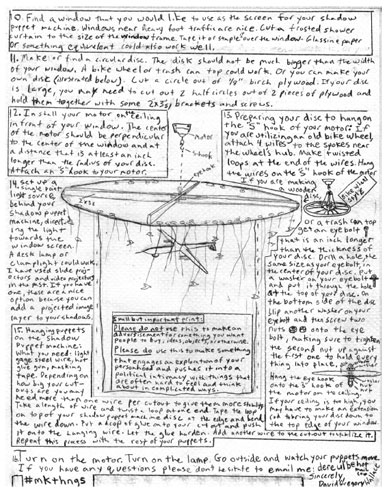 10. Find a window that you would like to use as the screen for your shadow
puppet machine. Windows near heavy foot traffic are nice. Cut a frosted shower
curtain to the size of the window frame. Tape it or staple over the window. Glassine paper
or something equivalent could also work well.
11. Make or find a circular disc. The disk should not be much bigger than the width
of your window. A bike wheel or trash can top could work. Or you can make your
own disc (illustrated below). Cut a circle out of 1/2" birch plywood. If your disc
is large, you may need to cut out 2 half circles out of 2 pieces of plywood and
hold them together with some 2x3 brackets and screws.
12. Install your motor on the ceiling
in front of your window. The center
of the motor should be perpendicular
to the center of the window and at
a distance that is at least an inch
longer than the radius of your disc.
Attach an "S" hook to your motor.
motor
hook
13. Preparing your disc to hang on
the "S" hook of your motor: If
you are utilizing an old bike wheel
attach 4 wires to the spokes near
the wheel's hub. Make twisted
loops at the end of the wires. Hang
the wires on the "S" hook of the motor.
If you are making
a wooden
disc
or a trash can top
get an eyebolt
that is an inch longer
than the thickness of
your disc. Drill a hole the
same size as your eyebolt, in
the center of your disc. Put
a washer on your eyebolt
and put it through the hole
at the top of your disc. On
the bottom side of the disc
slip another washer on your
eyebolt and then screw two
nuts onto the eye
bolt, making sure to tighten
the second nut up against
the first one to hold every
thing into place.
Hang the eye hook
onto the "S" hook of
the motor on the ceiling.
If your ceiling is too high, you
may have to make an extension
to bring your disc down to
the top edge of your window
14. Set up a
single point
light source
behind your
shadow puppet
machine, direct
ing the light
towards the
window screen.
A desk lamp or
clamp light could work.
I have used slide proj
ectors and video projectors
in the past. If you have
one, these are a nice
option because you can
add a projected image
layer to your shadows.
2x3s
15. Hanging puppets
on the Shadow
Puppet machine:
What you need: light
gauge steel wire, hot
glue gun, masking
tape. Depending on
how big your cut-
outs are, you may
need more than one wire per cutout to give them more stability.
Take a length of wire and twist a loop at one end. Tape the loop
on top of your shadow puppet machine disc at the edge and bend
the wire down. Put a drop of glue onto your cut out and push
it onto the hanging wire. Let the glue harden. Add another wire to the cutout to stabilize it.
Repeat this process with the rest of your puppets.
Small but important print:
Please do not use this to make an
advertisement for something you want
people to buy; ideas, objects, or otherwise.
Please do use this to make something
that engages an exploration of your
personhood and pushes it into a
political intimacy with things that
are often hard to feel and think
about in complicated ways.
Turn on the motor. Turn on the lamp. Go outside and watch your puppets move.
If you have any questions please don't hesitate to email me:
Sincerely,
#mkthngs